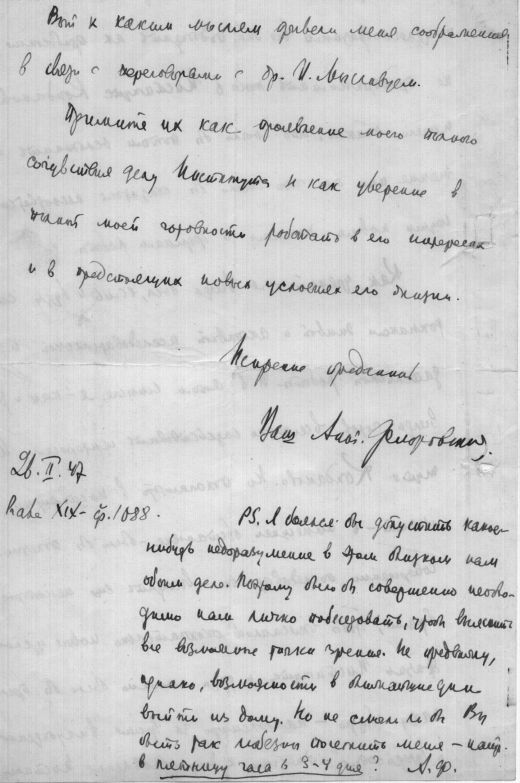 Вот к каким мыслям привели меня соображения
в связи с переговорами с др. И. Мыславцем.
Примите их как проявление моего полного
сочувствия делу Института и как уверение в
полной моей готовности работать в его интересах
и в предстоящих новых условиях его жизни.
Искренне преданный
Ваш Ант. Флоровский.
26. II. 47
Praha XIX - čp. 1088.
PS. Я боялся бы допустить какое-
нибудь недоразумение в этом близком нам
обоим деле. Поэтому было бы совершенно необхо-
димо нам лично побеседовать, чтобы выяснить
все возможные точки зрения. Не предвижу,
однако, возможности в ближайшие дни
выйти из дому. Но не смогли бы Вы
быть так любезны посетить меня – напр.
в пятницу часа в 3-4 дня? А.Ф.